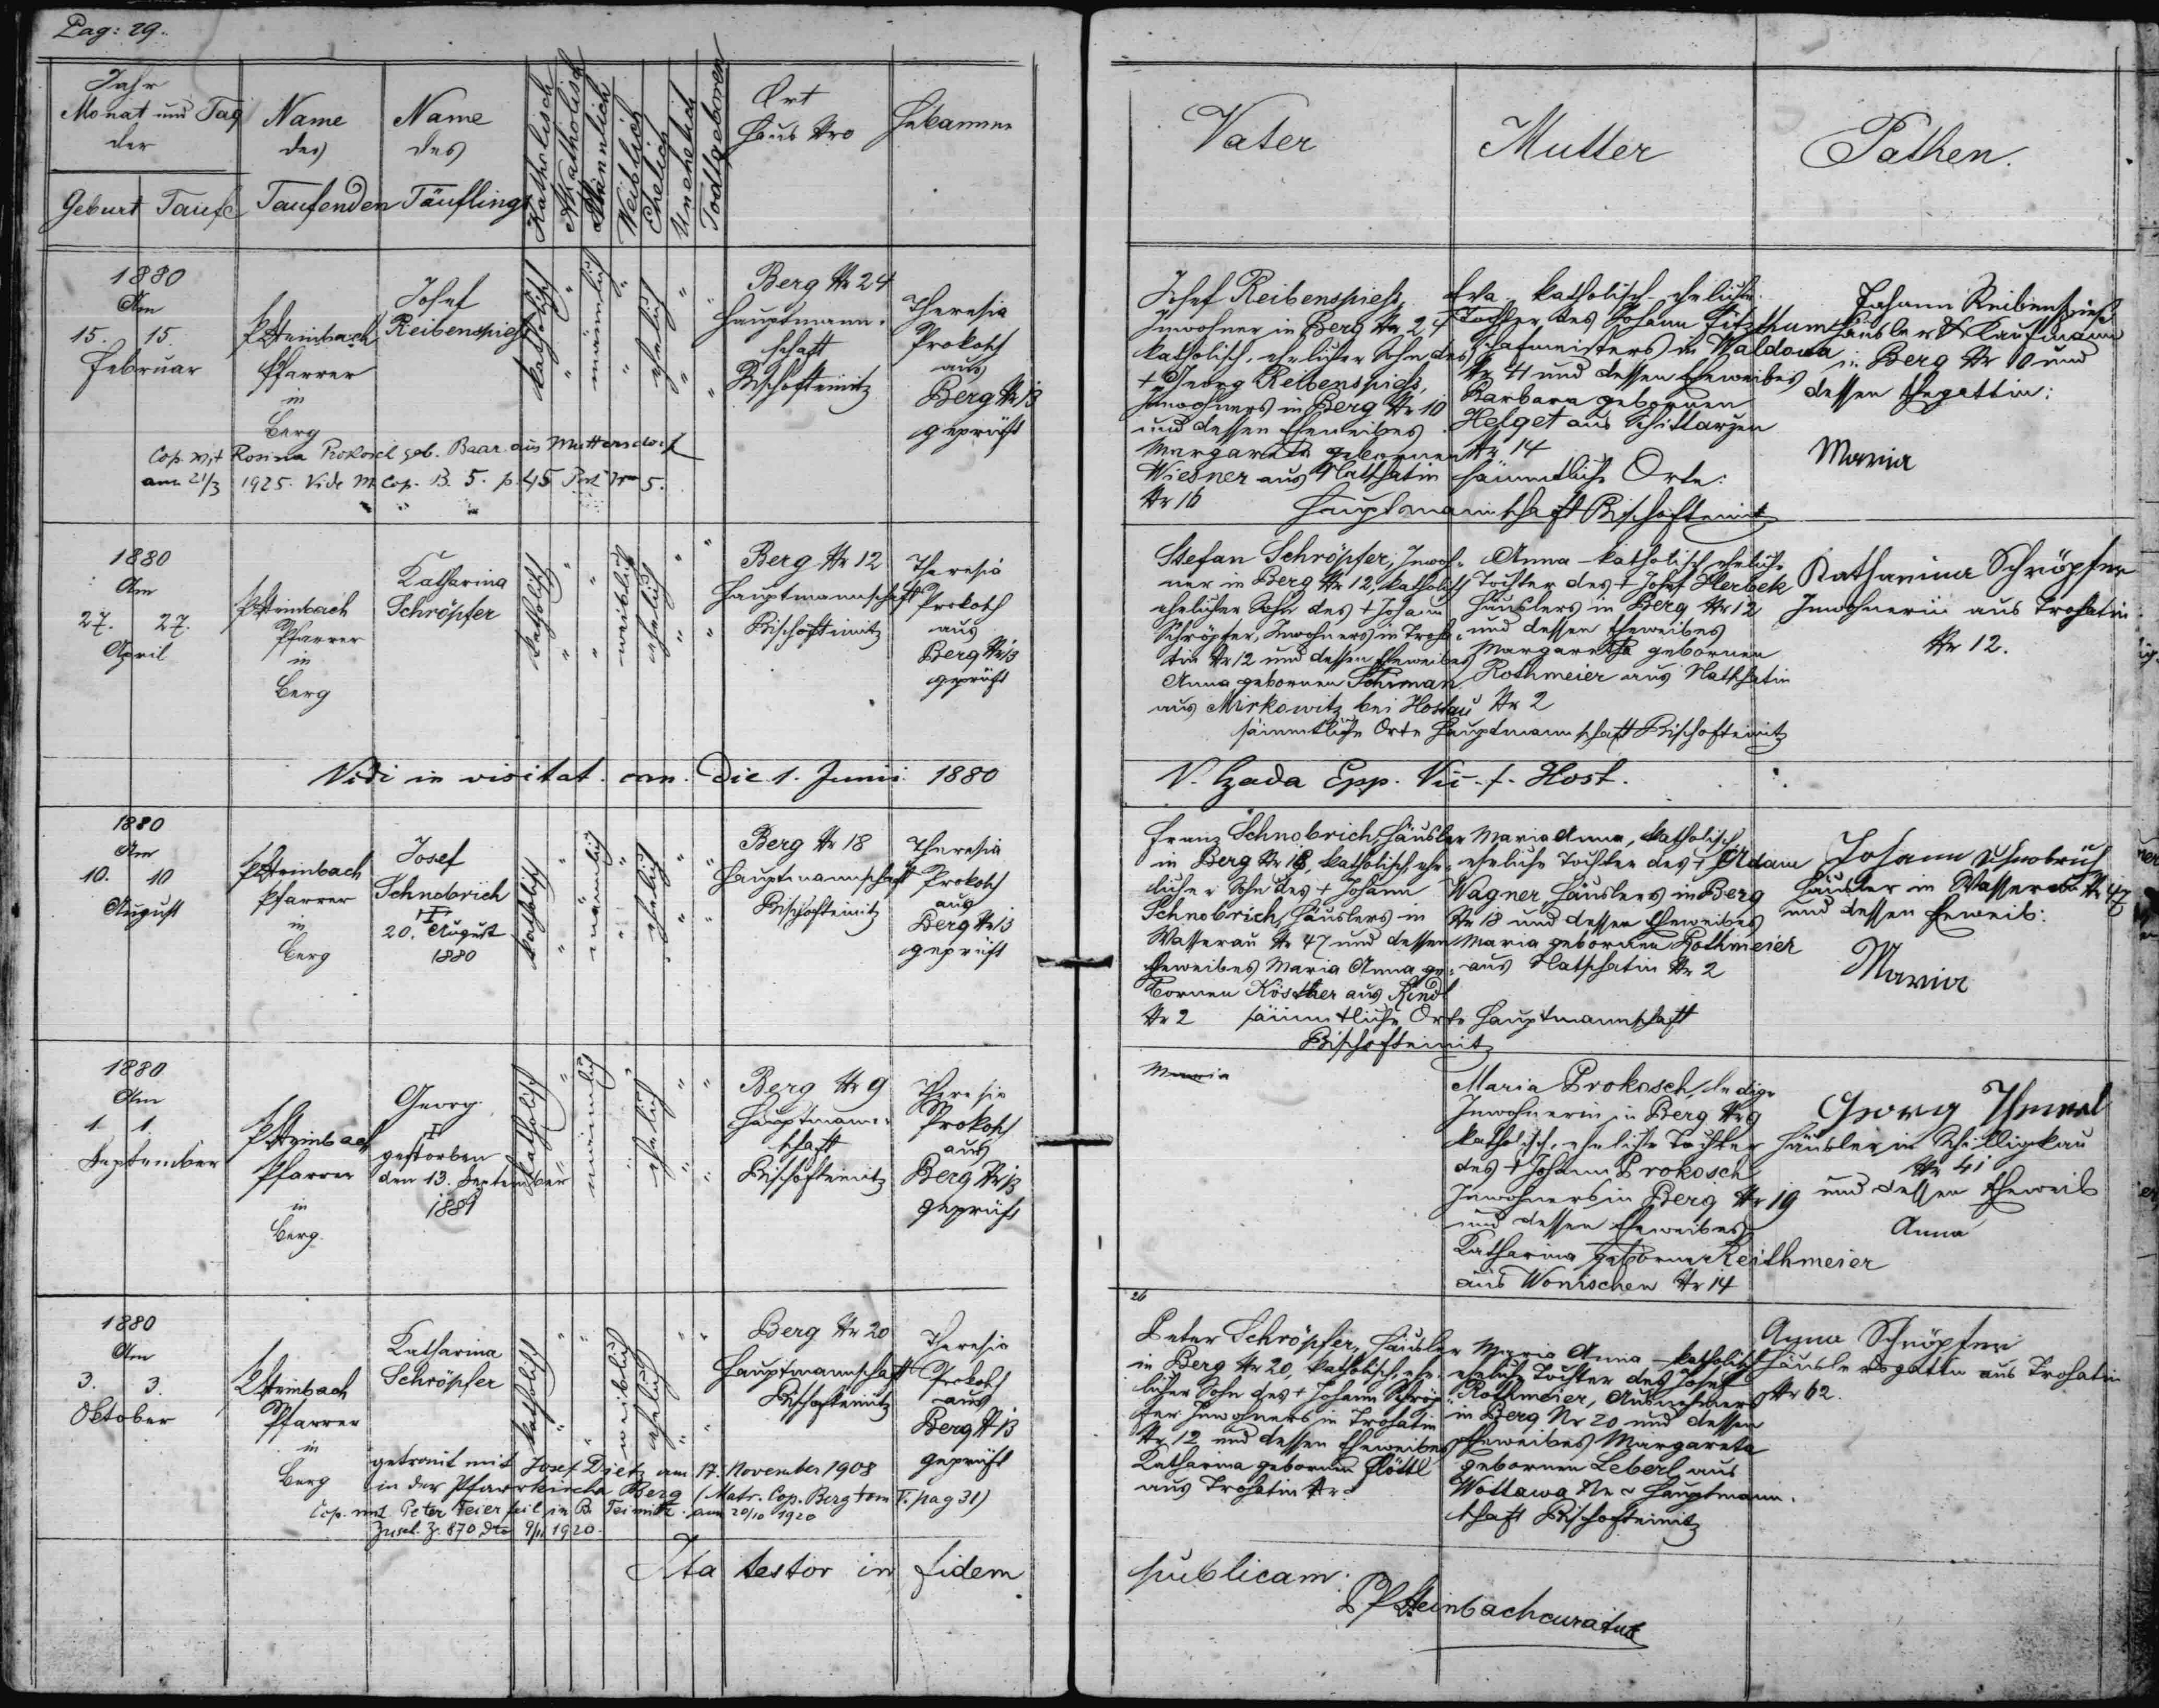 Pag: 29.
Jahr
Monat und Tag
der
Geburt
Taufe
Name
des
Taufenden
Name
des
Täuflings
Katholisch
Akatholisch
Männlich
Weiblich
Ehelich
Unehelich
Todtgeboren
Ort
Haus Nro
Hebamme
Vater
Mutter
Pathen.
1880
Am
15. 15.
Februar
P. Steinbach
Pfarrer
in
Berg
Josef
Reibenspiess
katholisch
männlich
ehelich
Berg Nr 24
Hauptmann-
schaft
Bischofteinitz
Theresia
Prokosch
aus
Berg Nr 13
geprüft
Cop. mit Rosina Prokosch geb. Baar aus Muttersdorf
am 21/3 1925. Vide M. Cop. B. 5. p. 45 Post Nro 5.
Josef Reibenspiess,
Inwohner in Berg Nr 24
katholisch, ehelicher Sohn des
+ Georg Reibenspiess,
Inwohners in Berg Nr 10
und dessen Eheweibes
Margareta gebornen
Wiesner aus Natschatin
Nr 16
Eva katholisch-eheliche
Tochter des Johann Fitzthum
Schafmeisters in Waldowa
Nr 4 und dessen Eheweibes
Barbara gebornen
Helget aus Schittarzen
Nr 14
sämmtliche Orte:
Hauptmannschaft Bischofteinitz
Johann Reibenspiess
Häusler & Kaufmann
in Berg Nr 10 und
dessen Ehegattin:
Maria
1880
Am
27. 27.
April
P. Steinbach
Pfarrer
in
Berg
Katharina
Schröpfer
katholisch
weiblich
ehelich
Berg Nr 12
Hauptmannschaft
Bischofteinitz
Theresia
Prokosch
aus
Berg Nr 13
geprüft
Stefan Schröpfer, Inwoh-
ner in Berg Nr 12, katholisch
ehelicher Sohn des + Johann
Schröpfer, Inwohners in Troha-
tin Nr 12 und dessen Eheweibes
Anna gebornen
aus Mirkowitz bei Hostau
Anna-katholisch eheliche
Tochter des + Josef Herbek
Häuslers in Berg Nr 12
und dessen Eheweibes
Margaretha gebornen
Rothmeier aus Natschatin
Nr 2
sämmtliche Orte Hauptmannschaft Bischofteinitz
Katharina Schröpfer
Inwohnerin aus Trohatin
Nr 12.
Vidi in visitat. can. die 1. Junii 1880
Epp. Vic. f. Host.
1880
Am
10. 10
August
P. Steinbach
Pfarrer
in
Berg
Josef
Schnobrich
†
20. August
1880
katholisch
männlich
ehelich
Berg Nr 18
Hauptmannschaft
Bischofteinitz
Theresia
Prokosch
aus
Berg Nr 13
geprüft
Franz Schnobrich, Häusler
in Berg Nr 18, katholisch, ehe-
licher Sohn des + Johann
Schnobrich, Häuslers in
Wasserau Nr 47 und dessen
Eheweibes Maria Anna ge-
bornen Kösther aus Rindl
Nr 2
Maria Anna, katholisch
eheliche Tochter des + Adam
Wagner Häuslers in Berg
Nr 18 und dessen Eheweibes
Maria gebornen Rothmeier
aus Natschatin Nr 2
sämmtliche Orte Hauptmannschaft
Bischofteinitz
Johann Schnobrich
Häusler in Wasserau Nr 47
und dessen Eheweib:
Maria
1880
Am
1. 1.
September
P. Steinbach
Pfarrer
in
Berg.
Georg
†
gestorben
den 13. September
1881
katholisch
männlich
ehelich
Berg Nr 9
Hauptmann-
schaft
Bischofteinitz
Theresia
Prokosch
aus
Berg Nr 13
geprüft
Maria
Maria Prokosch, ledige
Inwohnerin in Berg Nr 9
katholisch, eheliche Tochter
des + Johann Prokosch
Inwohners in Berg Nr 19
und dessen Eheweibes
Katharina gebornen Reithmeier
aus Wonischen Nr 14
Georg
Häusler in Schilligkau
Nr 41
und dessen Eheweib
Anna
1880
Am
3. 3.
Oktober
P. Steinbach
Pfarrer
in
Berg
Katharina
Schröpfer
katholisch
weiblich
ehelich
Berg Nr 20
Hauptmannschaft
Bischofteinitz
Theresia
Prokosch
aus
Berg Nr 13
geprüft
getraut mit Josef Dietz am 17. November 1908
in der Pfarrkirche Berg (Matr. Cop. Berg tom V. pag 31)
Cop. mit Peter Feierfeil in B. Teinitz. am 20/10 1920
Zuschr. Z. 870 dto 9/11 1920.
26
Peter Schröpfer, Häusler
in Berg Nr 20, katholisch, ehe-
licher Sohn des + Johann Schröp-
fer Inwohners in Trohatin
Nr 12 und dessen Eheweibes
Katharina gebornen Flöttl
aus Trohatin Nr
Maria Anna-katholisch
eheliche Tochter des Josef
Rothmeier, Ausnehmers
in Berg Nr 20 und dessen
Eheweibes Margareta
gebornen Leberl aus
Wottawa Nr ~ Hauptmann-
schaft Bischofteinitz
Anna Schröpfer
Häuslersgattin aus Trohatin
Nr 62.
Ita testor in fidem
publicam:
P. Steinbach curatus